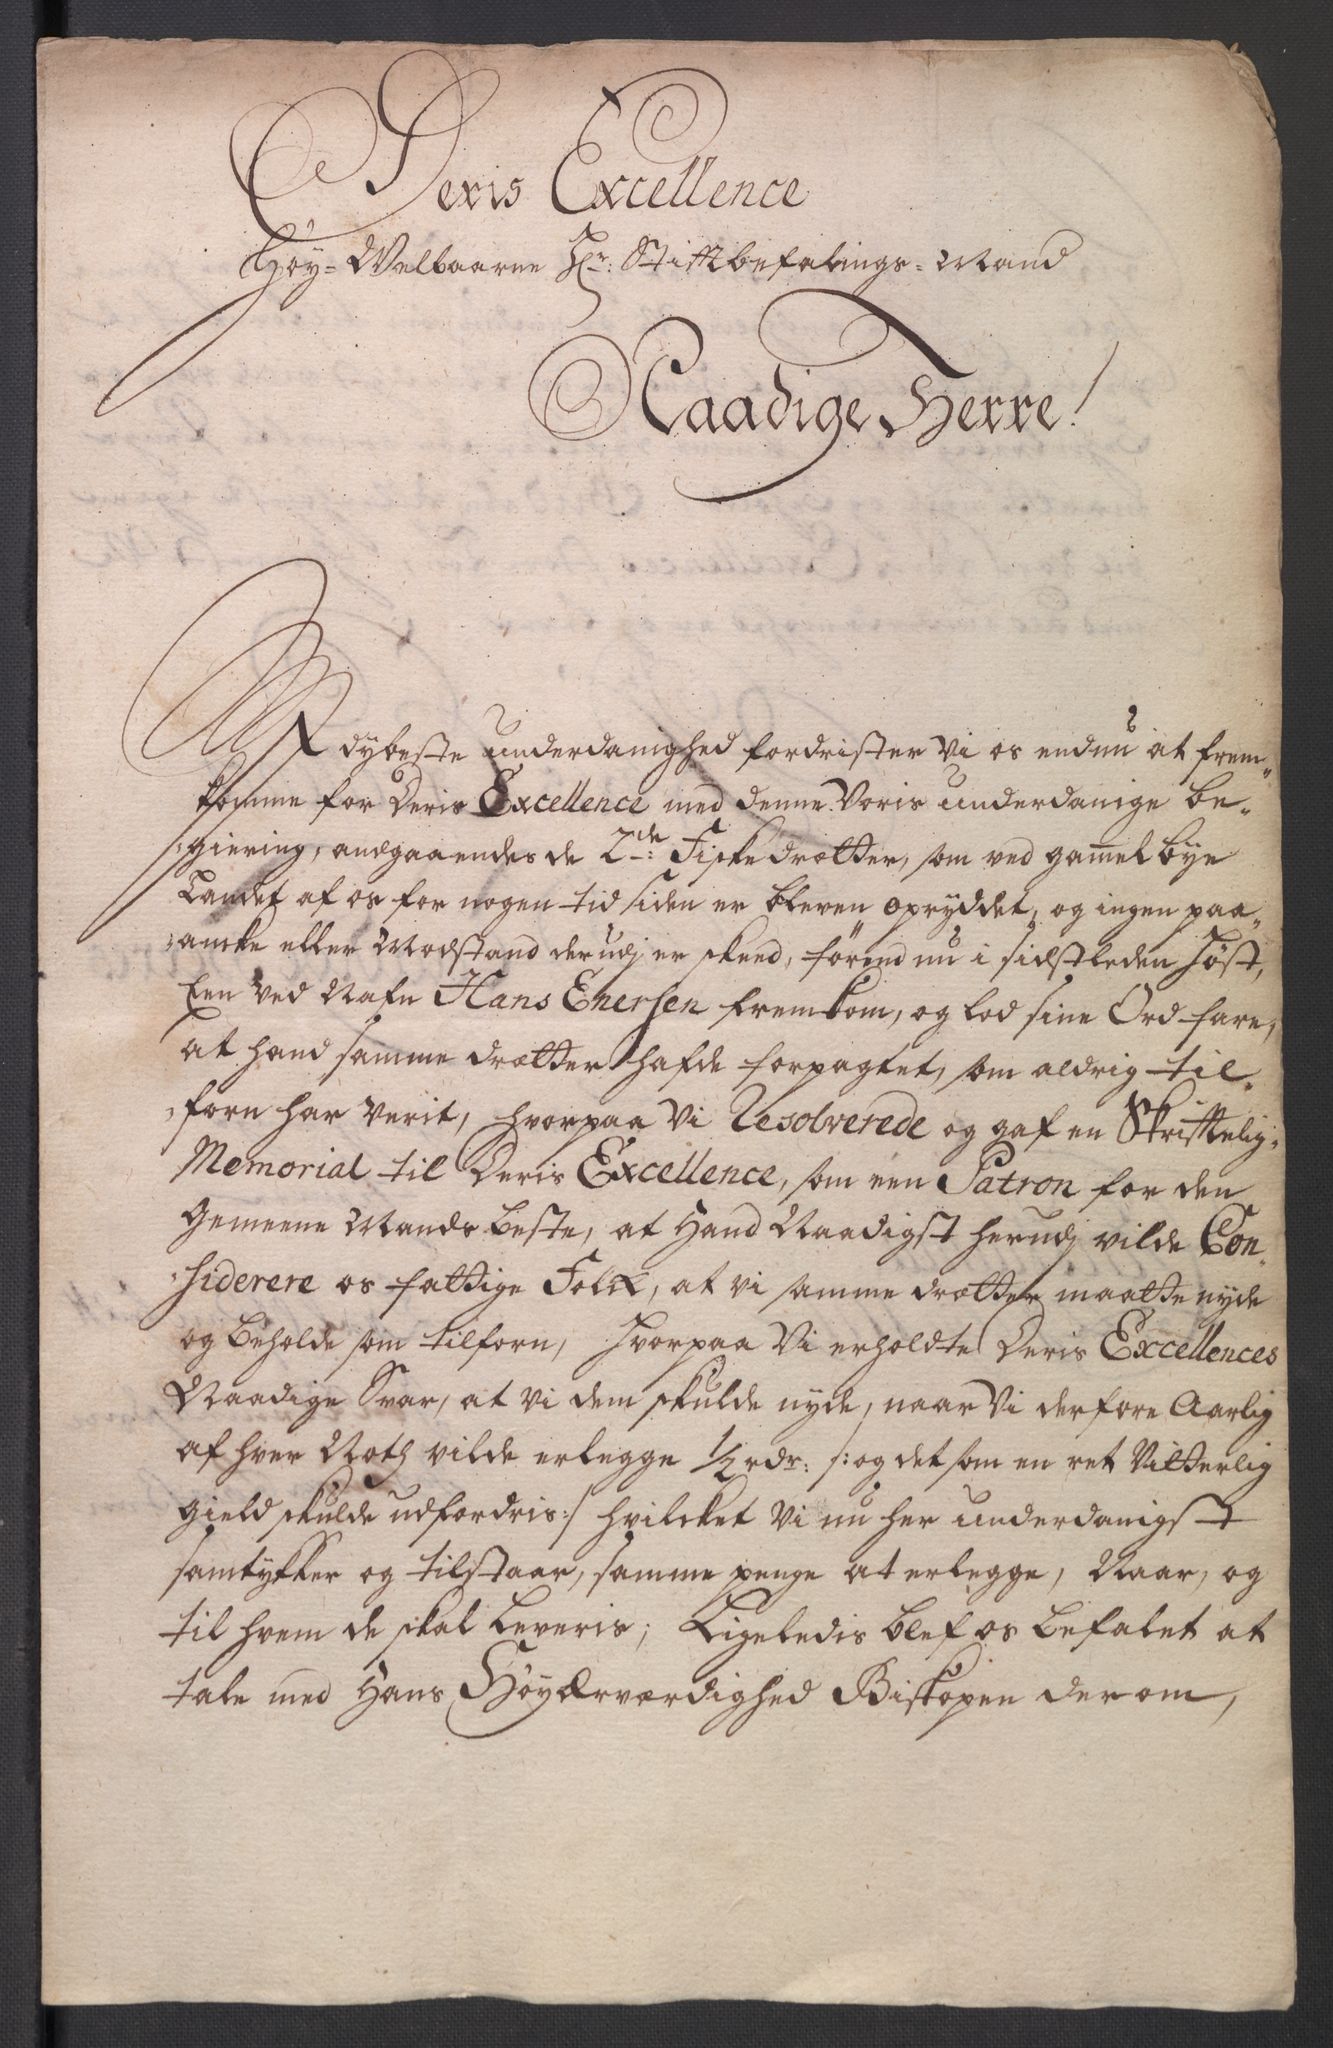 Deris Excellence
Høy-Welbaarne Hr: Stiftbefalings-Mand
Naadige Herre!
Af dybeste underdanighed fordrister Vi os endnu at frem-
komme for Deris Excellence med denne Voris underdanige be-
giering, andgaaendes de 2de: Fiskedrætter, som ved gammelbye
Landet af os for nogen tid siden er bleven opryddet, og ingen paa-
ancke eller Modstand derudj er skeed, førend nu i sidstleden Høst,
Een ved Nafn Hans Enersen fremkom, og lod sine Ord fare,
at hand samme drætter hafde forpagtet, som aldrig til-
forn har verit, hvorpaa Vi Resolverede og gaf en Skrifttelig
Memorial til Deris Excellence, som een Patron for den
Gemeene Mands beste, at Hand Naadigst herudj vilde Con-
siderere os fattige Folck, at vi samme drætter maatte nyde
og beholde som tilforn, Hvorpaa Vi erholdte Deris Excellences
Naadige Svar, at vi dem skulde nyde, naar Vi derfore Aarlig
af hver Noth vilde erlegge 1/2 rdr: /: og det som en ret Vitterlig
Gield skulde udfordris :/ hvilcket Vi nu her underdanigst
samtykker og tilstaar, samme penge at erlegge, Naar, og
til hvem de skal leveris; Ligeledis blef os befalet at
tale med Hans HøyÆrværdighed Biskopen derom,